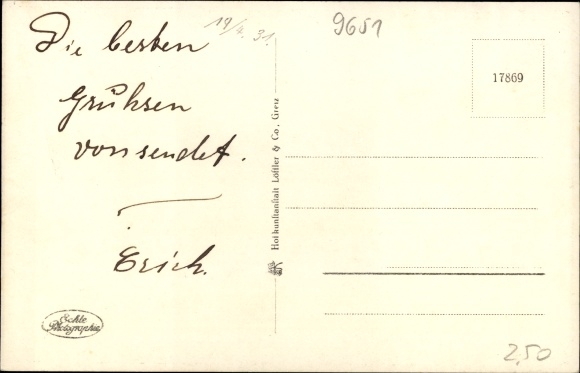 19/4. 31.
9651
Die besten
Grühsen
vorsendet.
Erich.
17869
Hofkunstanstalt Löffler & Co., Greiz
Echte
Photographie
2,50